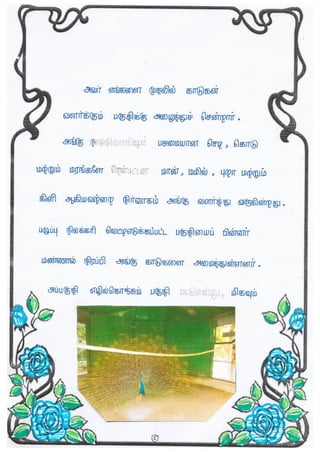 அவர் எங்களை முதலில் காடுகள்
வளர்க்கும் பகுதிக்கு அழைத்துச் சென்றார்.
அங்கு பசுமையான செடி, கொடி
மற்றும் மரங்களே மான், மயில், புறா மற்றும்
கிளி ஆகியவற்றை நிர்வாகம் அங்கு வளர்த்து வருகின்றது.
பழுப்பு நிலக்கரி வெட்டிஎடுக்கப்பட்ட பகுதியைப் பின்னர்
மண்ணால் நிரப்பி அங்கு காடுகளை அமைத்துள்ளனர்.
அப்பகுதி எழில்கொஞ்சும் பகுதி மிகவும்